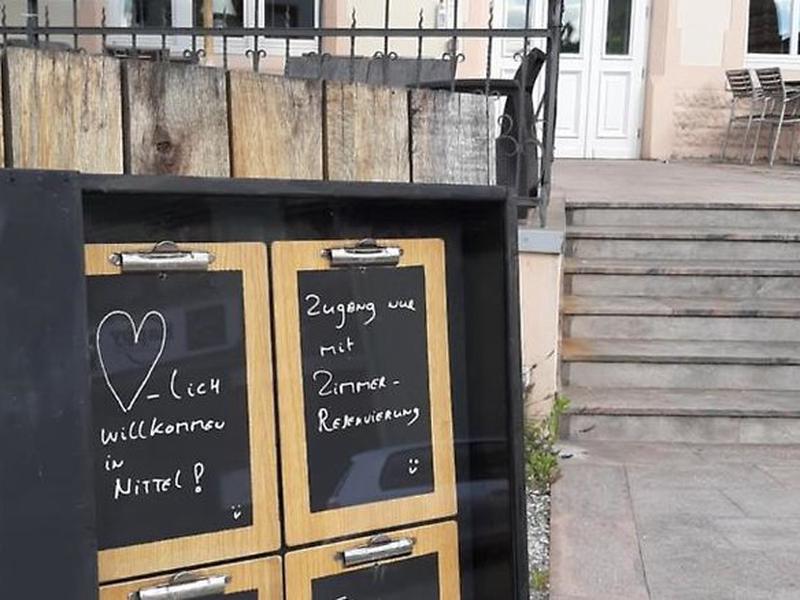 ♡-lich
willkommen
in
Nittel!
Zugang nur
mit
Zimmer-
Reservierung